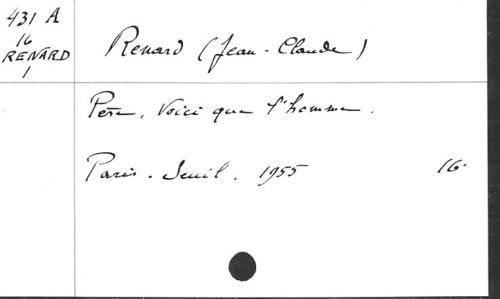 431 A
16
RENARD
1
Renard (Jean-Claude)
Père, Voici que l'homme.
Paris. Seuil. 1955 16.